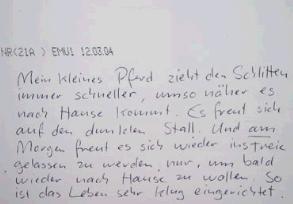 NR(21A ) EMU1 12.03.04
Mein kleines Pferd zieht den Schlitten
immer schneller, umso näher es
nach Hause kommt. Es freut sich
auf den dunklen Stall. Und am
Morgen freut es sich wieder ins freie
gelassen zu werden, nur, um bald
wieder nach Hause zu wollen. So
ist das Leben sehr klug eingerichtet.